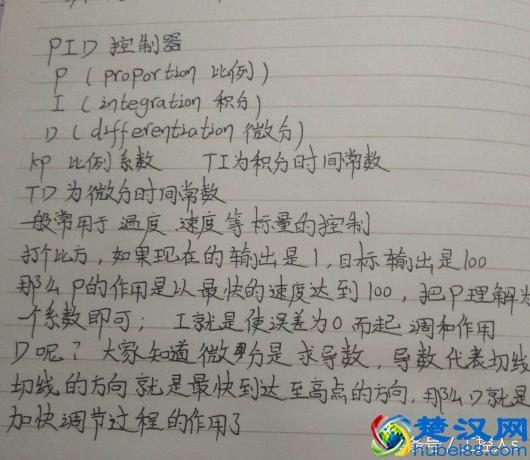 PID 控制器
P ( proportion 比例 )
I ( integration 积分 )
D ( differentiation 微分 )
kp 比例系数 TI为积分时间常数
TD 为微分时间常数
一般常用于 温度 速度等标量的控制
打个比方，如果现在的输出是1，目标输出是100
那么P的作用是以最快的速度达到100，把P理解为
个系数即可； I就是使误差为0而起调和作用
D呢？大家知道微分是求导数，导数代表切线
切线的方向就是最快到达至高点的方向，那么D就是
加快调节过程的作用了
楚汉网
hubei88.com